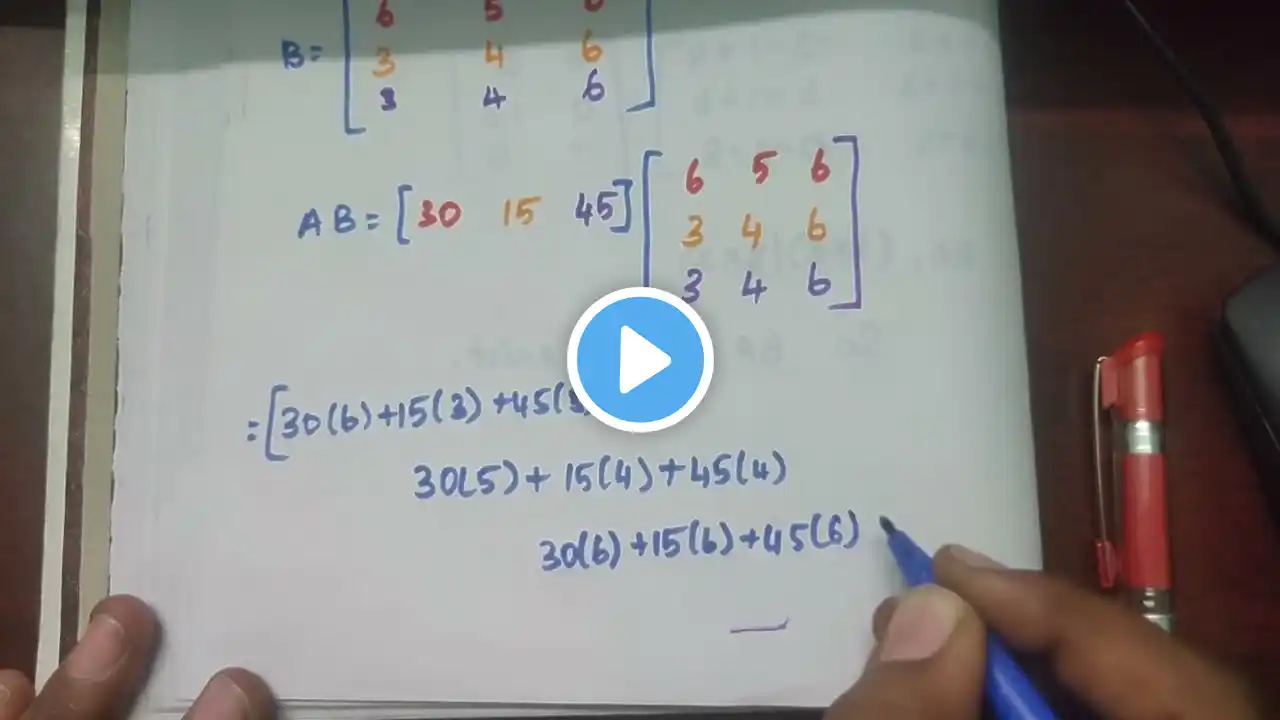 6 5 6
B= 3 4 6
3 4 6
6 5 6
AB= [30 15 45] 3 4 6
3 4 6
=[30(6)+15(3)+45(3)
30(5)+ 15(4)+45(4)
30(6)+15(6)+45(6)